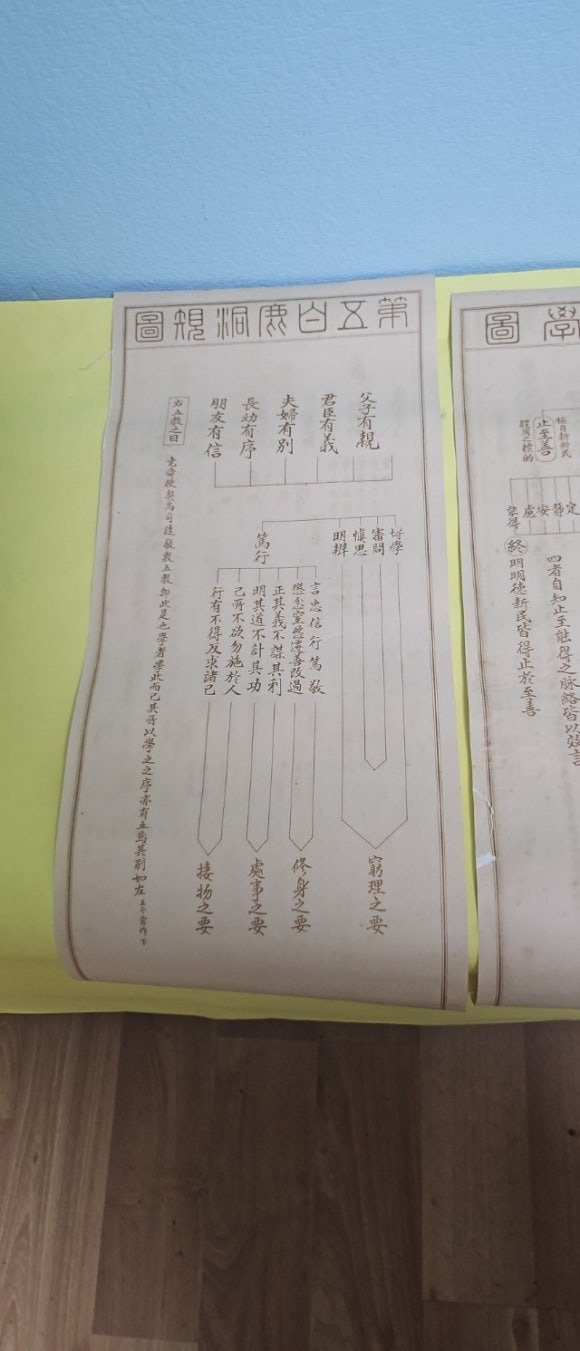 學圖
極自新新民
體用之標的
止至善
定
靜
安
慮
能得
四者自知止至能得之脉絡皆以效言
終
明明德新民皆得止於至善
第五白鹿洞規圖
父子有親
君臣有義
夫婦有別
長幼有序
朋友有信
右五敎之目
堯舜使契爲司徒敬敷五敎卽此是也學者學此而已其所以學之之序亦有五焉其別如左 左今當作下
博學
審問
愼思
明辨
篤行
言忠信行篤敬
懲忿窒慾遷善改過
正其義不謀其利
明其道不計其功
己所不欲勿施於人
行有不得反求諸己
窮理之要
修身之要
處事之要
接物之要